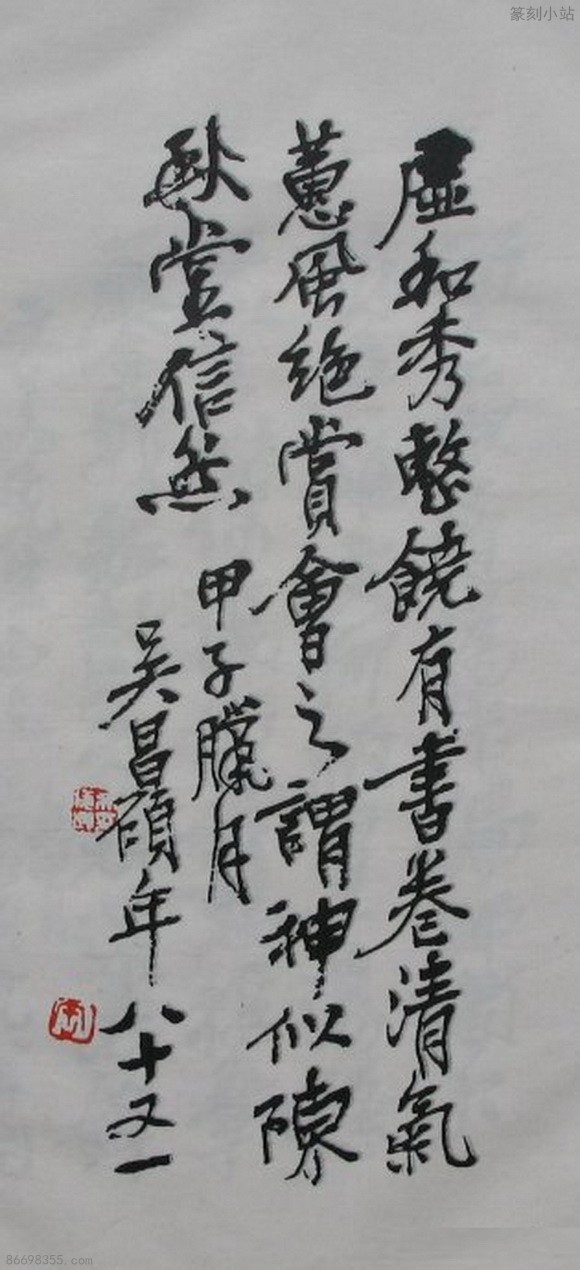 篆刻小站
虛和秀整饒有書卷清氣
蕙風絶賞會之謂神似陳
秋堂信然
甲子臘月
吴昌碩年八十又一
86698355.com